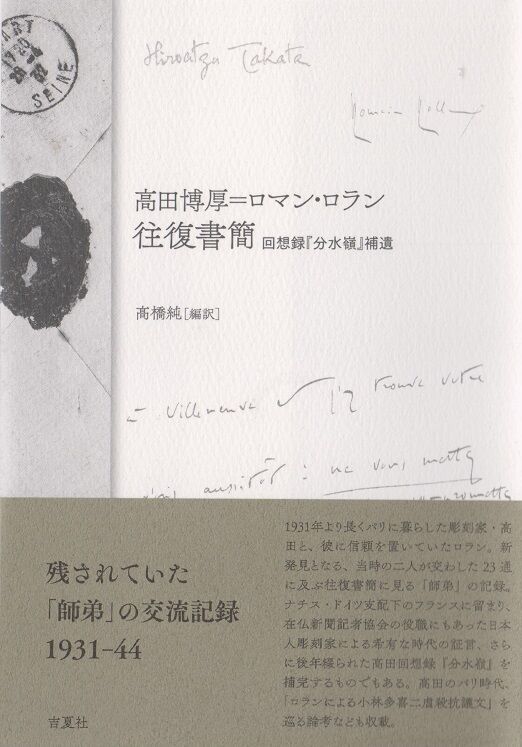 SEINE
Hiroatzu Takata
Romain Rolland
高田博厚＝ロマン・ロラン
往復書簡 回想録『分水嶺』補遺
髙橋純［編訳］
Villeneuve
trouve votre
aussitôt : ne vous mettez
残されていた
「師弟」の交流記録
1931–44
吉夏社
1931年より長くパリに暮らした彫刻家・高
田と、彼に信頼を置いていたロラン。新
発見となる、当時の二人が交わした 23 通
に及ぶ往復書簡に見る「師弟」の記録。
ナチス・ドイツ支配下のフランスに留まり、
在仏新聞記者協会の役職にもあった日本
人彫刻家による希有な時代の証言、さら
に後年綴られた高田回想録『分水嶺』を
補完するものでもある。高田のパリ時代、
「ロランによる小林多喜二虐殺抗議文」を
巡る論考なども収載。